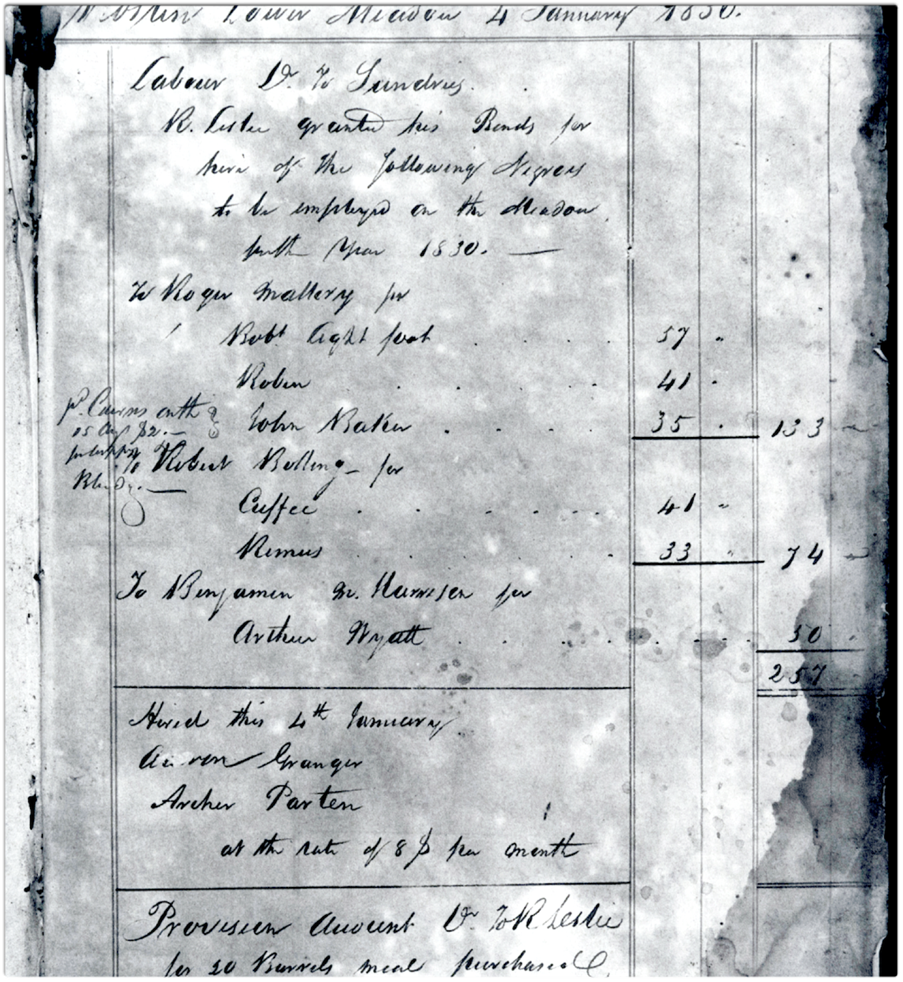 Lower Meadow 4 January 1830.
Labour Dr. To Sundries.
R. Leslie granted his Bonds for
hire of the following Negroes
to be employed on the Meadow
for the Year 1830. —
To Roger Mallery for
Robt Lightfoot . . . . 57 "
Robin . . . . . 41 "
John Baker . . . . . 35 " 133 "
15 Aug 32. —
To Robert Bolling — for
Cuffee . . . . . 41 "
Remus . . . . . 33 " 74 "
To Benjamin M. Harrison for
Arthur Wyatt . . . . . 50
257
Hired this 4th January
Aaron Granger
Archer Parten
at the rate of 8 $ per month
Provision Account Dr. To R Leslie
for 20 Barrels meal purchased